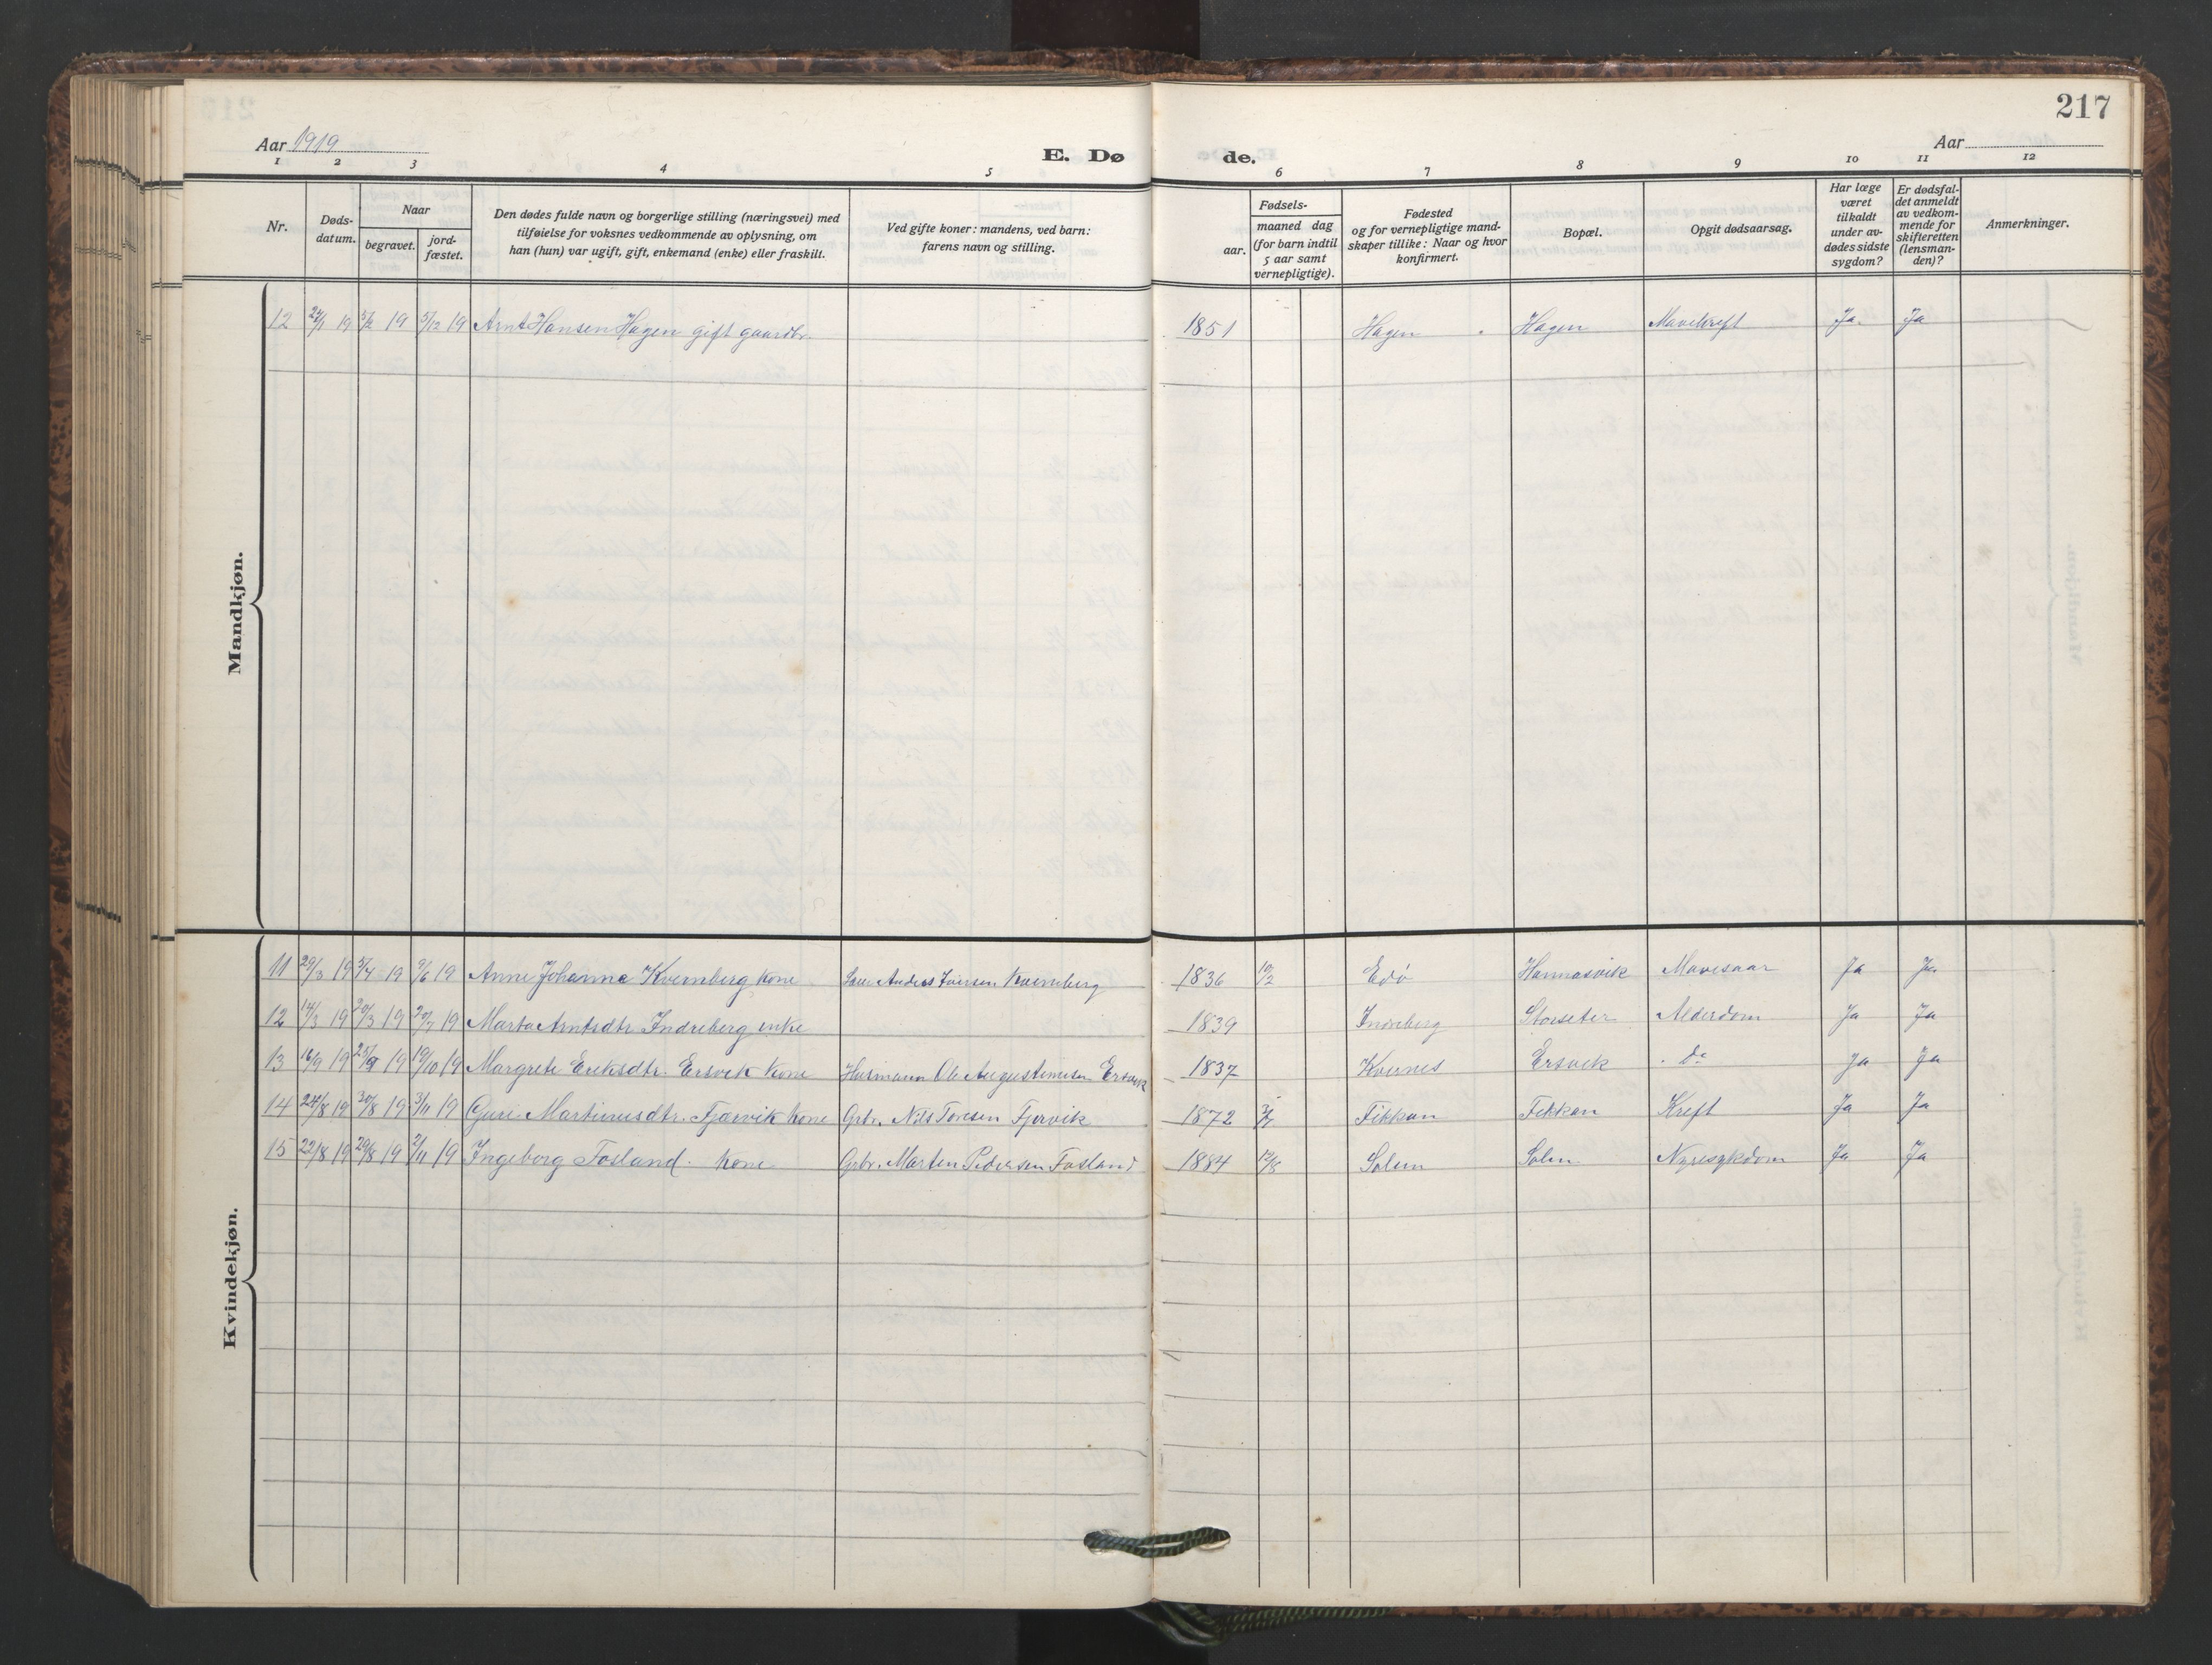 217
Aar 1919
E. Dø de.
Aar
1 2 3 4 5 6 7 8 9 10 11 12
Nr.
Døds-
datum.
Naar
begravet.
jord-
fæstet.
Den dødes fulde navn og borgerlige stilling (næringsvei) med
tilføielse for voksnes vedkommende av oplysning, om
han (hun) var ugift, gift, enkemand (enke) eller fraskilt.
Ved gifte koner: mandens, ved barn:
farens navn og stilling.
Fødsels-
aar.
maaned dag
(for barn indtil
5 aar samt
vernepligtige).
Fødested
og for vernepligtige mand-
skaper tillike: Naar og hvor
konfirmert.
Bopæl.
Opgit dødsaarsag.
Har læge
været
tilkaldt
under av-
dødes sidste
sygdom?
Er dødsfal-
det anmeldt
av vedkom-
mende for
skifteretten
(lensman-
den)?
Anmerkninger.
Mandkjøn.
12 19 5/2 19 5/12 19 Arnt Hansen Hagen gift gaardbr. 1851 Hagen Hagen Mavekreft Ja. Ja
Kvindekjøn.
11 29/3 19 5/4 19 9/6 19 Anne Johanne Kvernberg kone Anders Iversen Kvernberg 1836 10/2 Edö Hannasvik Mavesaar Ja Ja
12 14/3 19 20/3 19 20/7 19 Marta Arntsdtr. Indreberg enke 1839 Indreberg Storseter Alderdom Ja Ja
13 16/9 19 25/9 19 19/10 19 Margrete Eriksdtr. Ersvik kone Husmann Ole Augustinusen Ersvik 1837 Kvernes Ersvik do Ja Ja
14 24/8 19 30/8 19 3/11 19 Guri Martinusdtr. Fjærvik kone Grbr. Nils Toresen Fjervik 1872 Fikkan Fikkan Kreft Ja Ja
15 22/8 19 29/8 19 2/11 19 Ingeborg Fosland. kone Grbr. Marten Pedersen Fosland 1884 12/8 Solem Solem Nyresykdom Ja Ja